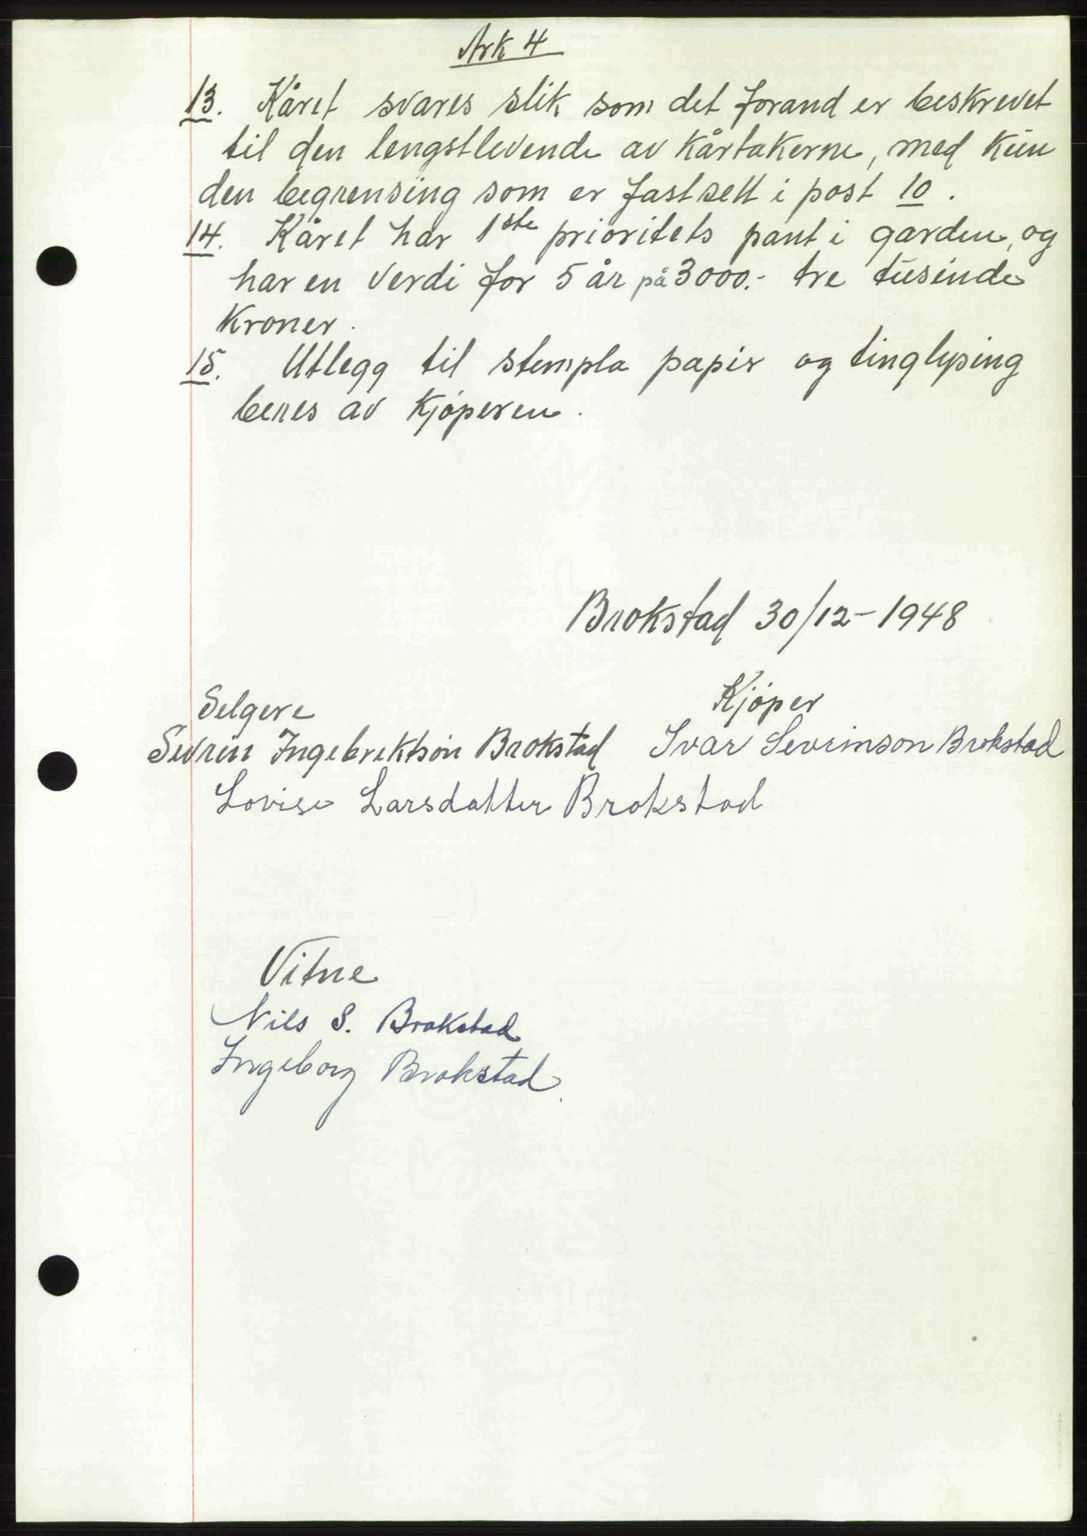 Ark 4
13. Kåret svares slik som det forand er beskrevet
til den lengstlevende av kårtakerne, med kun
den begrensing som er fastsett i post 10.
14. Kåret har 1ste prioritets pant i garden, og
har en verdi for 5 år på 3000.- tre tusinde
kroner.
15. Utlegg til stempla papir og tinglysing
beres av kjøperen.
Brokstad 30/12-1948
Selgere
Kjøper
Sevrin Ingebrektson Brokstad
Ivar Sevrinson Brokstad
Lovise Larsdatter Brokstad
Vitne
Nils S. Brokstad
Ingeborg Brokstad